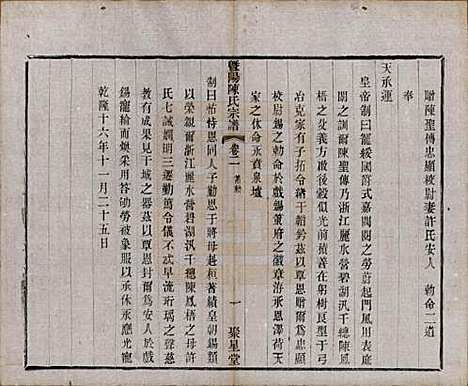 贈陳聖傳忠顯校尉妻許氏安人　勅命二道
奉
天承運
皇帝制曰龍綬國爵式嘉閥閱之勞蔚起門風用表庭
闈之訓爾陳聖傳乃浙江麗水營碧湖汛千總陳鳳
梧之父義方啟後穀似光前積善在躬樹良型于弓
冶克家有子拓令緒于韜鈐茲以覃恩贈爾爲忠顯
校尉錫之勅命於戲錫策府之徽章洊承恩澤荷天
家之休命永賁泉壚
暨陽陳氏宗譜
卷二
一
聚星堂
制曰怙恃恩同人子勤恩于將母赳桓著績皇朝錫類
以榮親爾許氏乃浙江麗水營碧湖汛千總陳鳳梧之母
氏七誡嫻明三遷勤篤令儀不忒早流珩瑀之聲慈
教有成果見干城之器茲以覃恩封爾爲安人於戲
錫龍綸而煥采用答劬勞被象服以承休永膺光寵
乾隆十六年十一月二十五日